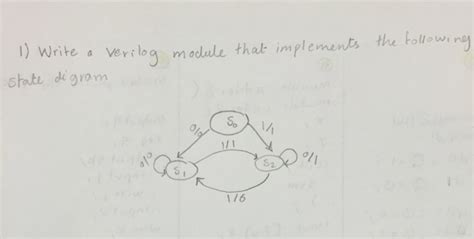 1) Write a verilog module that implements the following
state digram
S0
0/0 1/1
1/1
0/0 S1 S2 0/1
1/0